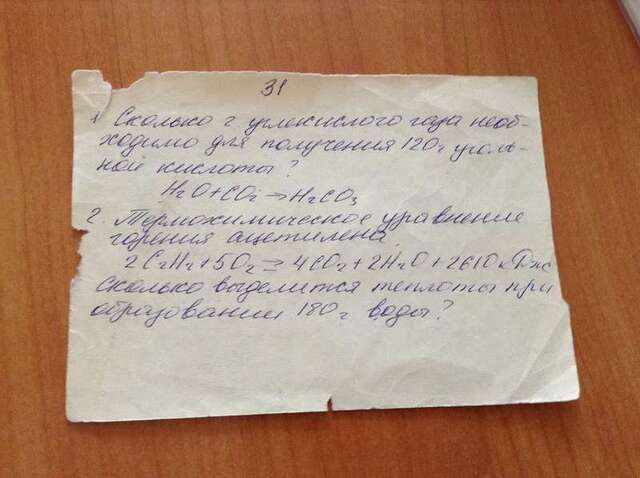 31
1 Сколько г углекислого газа необ-
ходимо для получения 120 г уголь-
ной кислоты?
H2O+CO2 → H2CO3
2. Термохимическое уравнение
горения ацетилена
2C2H2+5O2 = 4CO2+2H2O+2610 кДж
Сколько выделится теплоты при
образовании 180 г воды?